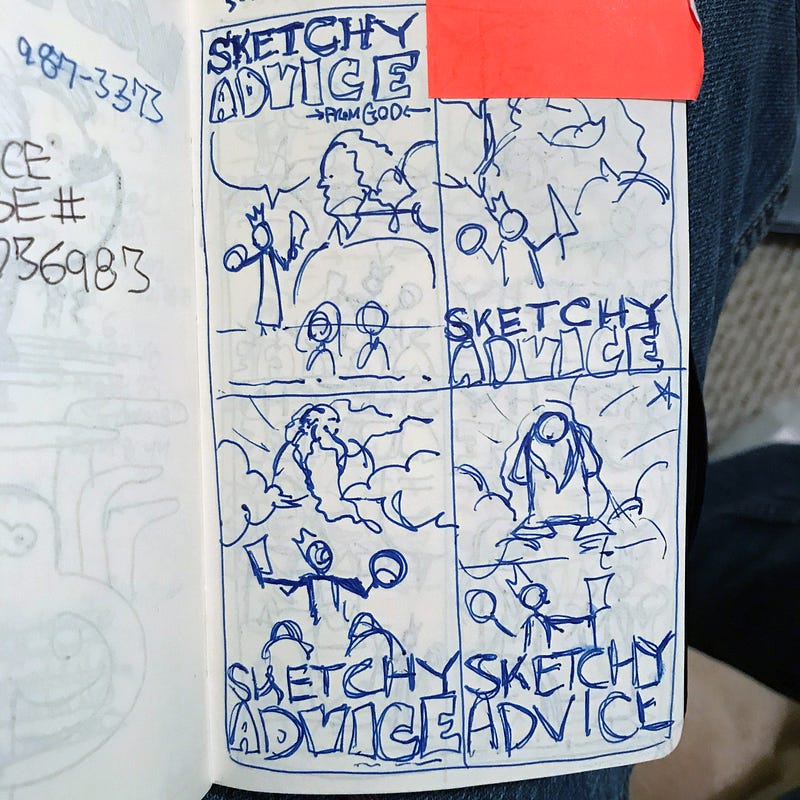 987-3373
CE
SE#
036983
SKETCHY
ADVICE
→FROM GOD←
SKETCHY
ADVICE
SKETCHY
ADVICE
SKETCHY
ADVICE